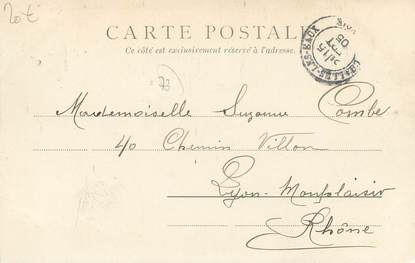 20 t
CARTE POSTALE
Ce côté est exclusivement réservé à l'adresse.
73
Mademoiselle Suzanne Combe
40 Chemin Villon
Lyon-Monplaisir
Rhône